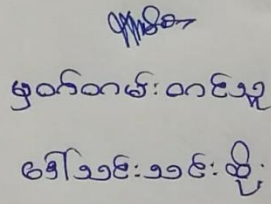 မှတ်တမ်းတင်သူ
ဒေါ်သင်းသင်းဆို့